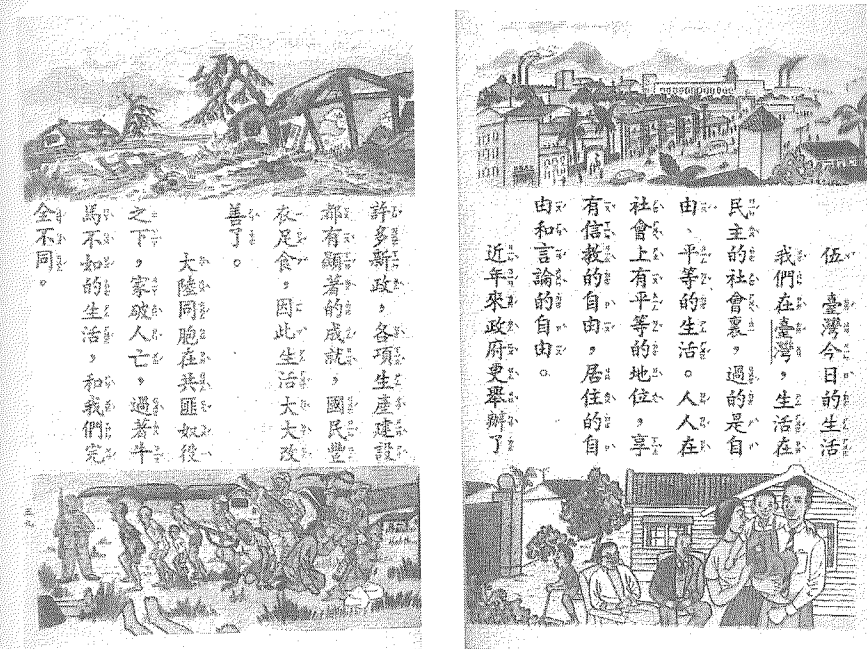 伍　臺灣今日的生活
我們在臺灣，生活在
民主的社會裏，過的是自
由、平等的生活。人人在
社會上有平等的地位，享
有信教的自由，居住的自
由和言論的自由。
近年來政府更舉辦了
許多新政，各項生產建設
都有顯著的成就，國民豐
衣足食，因此生活大大改
善了。
大陸同胞在共匪奴役
之下，家破人亡，過著牛
馬不如的生活，和我們完
全不同。
五九